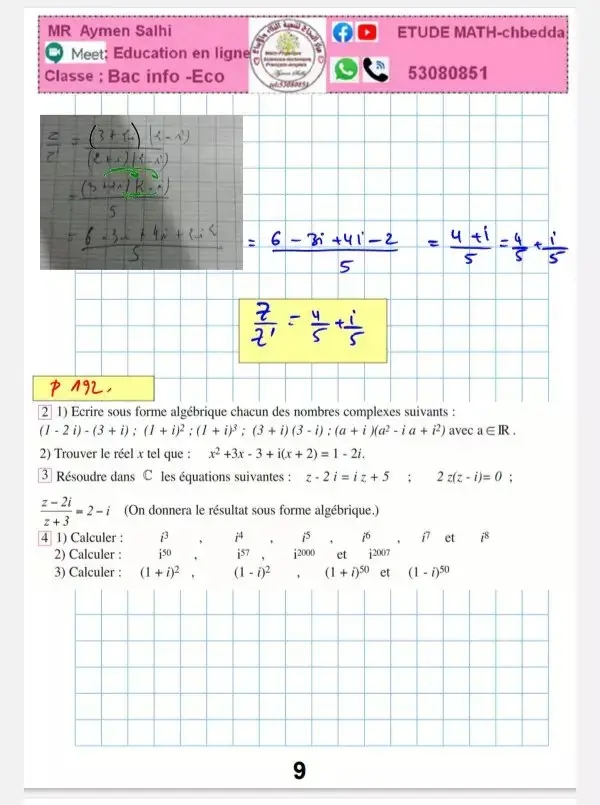 MR Aymen Salhi
ETUDE MATH-chbedda
Meet: Education en ligne
Classe : Bac info -Eco
53080851
z/z' = (3+2i)(2-i)/(2+i)(2-i)
= (3+2i)(2-i)/5
= 6-3i+4i+2i²/5 = 6-3i+4i-2/5 = 4+i/5 = 4/5 + i/5
z/z' = 4/5 + i/5
P 192.
2 1) Ecrire sous forme algébrique chacun des nombres complexes suivants :
(1 - 2 i) - (3 + i) ; (1 + i)² ; (1 + i)³ ; (3 + i) (3 - i) ; (a + i )(a² - i a + i²) avec a ∈ IR .
2) Trouver le réel x tel que : x² +3x - 3 + i(x + 2) = 1 - 2i.
3 Résoudre dans ℂ les équations suivantes : z - 2 i = i z + 5 ; 2 z(z - i)= 0 ;
z - 2i/z + 3 = 2 - i (On donnera le résultat sous forme algébrique.)
4 1) Calculer : i³ , i⁴ , i⁵ , i⁶ , i⁷ et i⁸
2) Calculer : i⁵⁰ , i⁵⁷ , i²⁰⁰⁰ et i²⁰⁰⁷
3) Calculer : (1 + i)² , (1 - i)² , (1 + i)⁵⁰ et (1 - i)⁵⁰
9